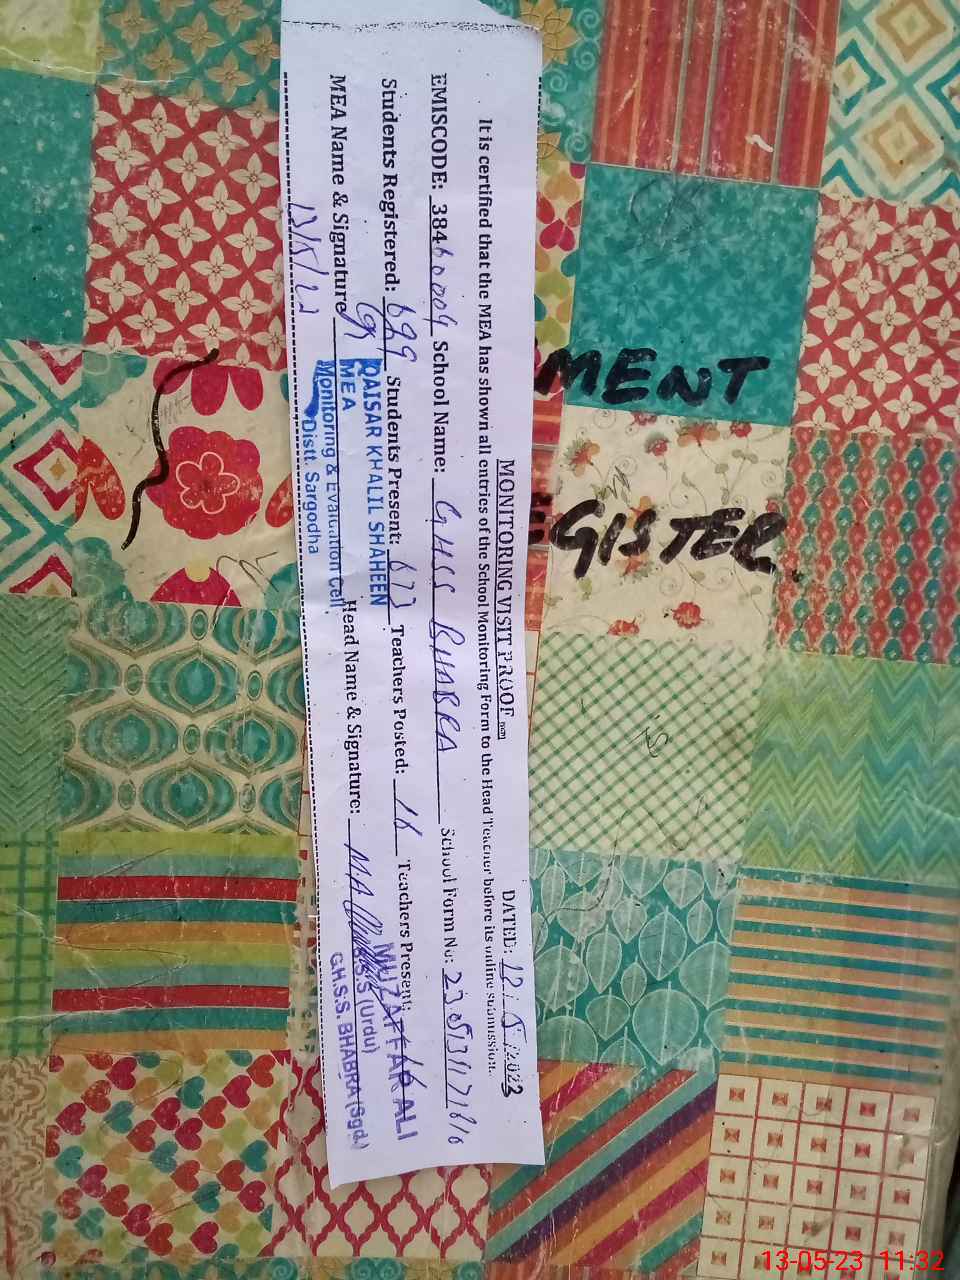 MONITORING VISIT PROOF
DATED: 12/5/2023
It is certified that the MEA has shown all entries of the School Monitoring Form to the Head Teacher before its online submission.
EMISCODE: 38460009 School Name: GHSS BHABRA School Form No:
Students Registered: 699 Students Present: 673 Teachers Posted: 16 Teachers Present: 16
MEA Name & Signature Head Name & Signature:
QAISAR KHALIL SHAHEEN
MEA
Monitoring & Evaluation Cell
Distt. Sargodha
MUZAFFAR ALI
S.S (Urdu)
G.H.S.S. BHABRA (Sgd.)
MENT
EGISTER
13-05-23 11:32